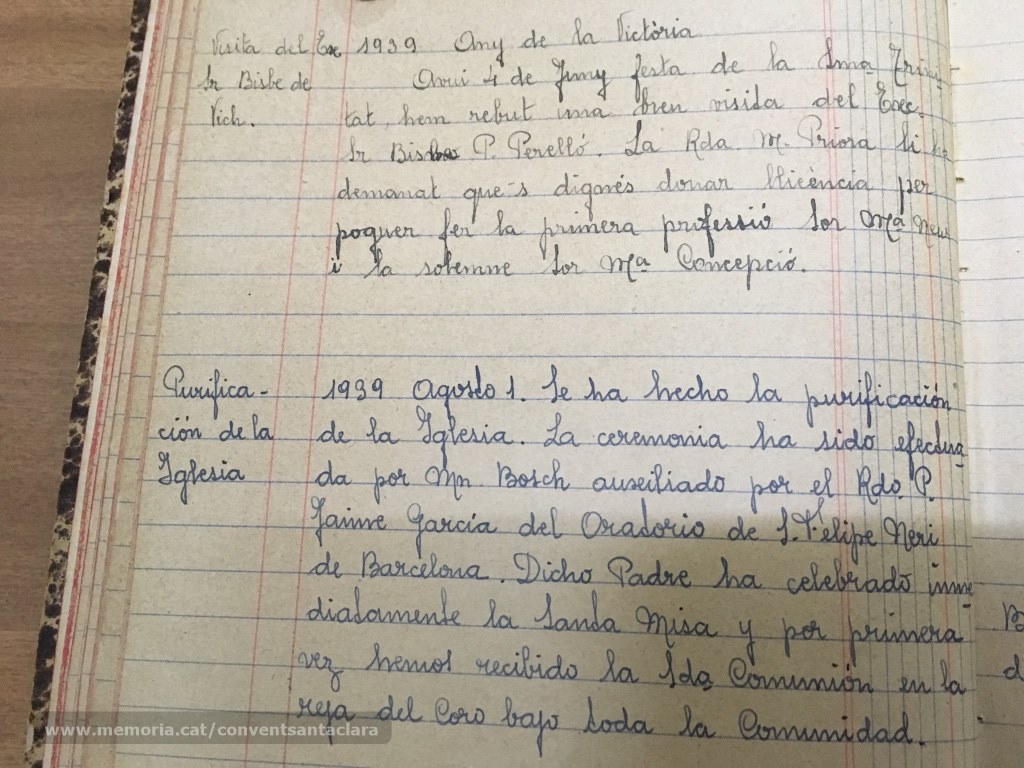 Visita del Ex
Sr Bisbe de
Vich.
1939 Any de la Victòria
Avui 4 de Juny festa de la Sma Trini-
tat, hem rebut una bren visita del Exec.
Sr Bisbe P. Perelló. La Rda M. Priora li ha
demanat que-s dignés donar llicència per
poguer fer la primera professió Sor Mª Neus
i la solemne Sor Mª Concepció.
Purifica-
ción de la
Iglesia
1939 Agosto 1. Se ha hecho la purificación
de la Iglesia. La ceremonia ha sido efectua-
da por Mn Bosch auxiliado por el Rdo P.
Jaime García del Oratorio de S. Felipe Neri
de Barcelona. Dicho Padre ha celebrado inme-
diatamente la Santa Misa y por primera
vez hemos recibido la Sda Comunión en la
reja del Coro bajo toda la Comunidad.
www.memoria.cat/conventsantaclara